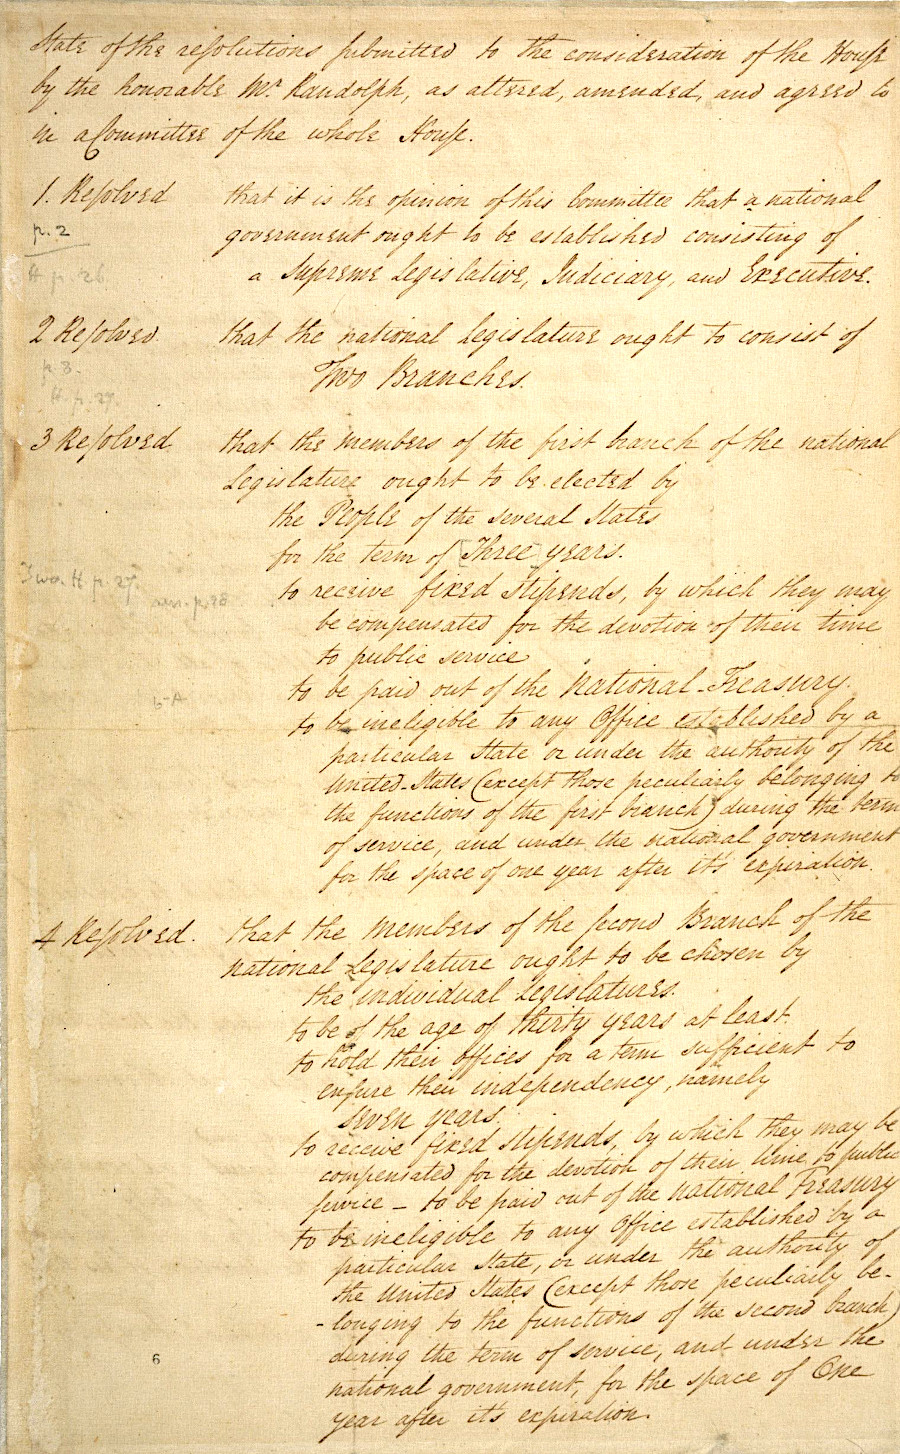 State of the resolutions submitted to the consideration of the House
by the honorable Mr Randolph, as altered, amended, and agreed to
in a Committee of the whole House.
1. Resolved that it is the opinion of this Committee that a national
p. 2 government ought to be established consisting of
H p. 26 a Supreme Legislative, Judiciary, and Executive.
2 Resolved. that the national Legislature ought to consist of
p. 3. Two Branches.
H. p. 27.
3 Resolved that the Members of the first branch of the national
Legislature ought to be elected by
the People of the several States
for the term of [Three] years.
Two. H p. 27.
to receive fixed stipends, by which they may
be compensated for the devotion of their time
to public service
to be paid out of the National-Treasury.
to be ineligible to any Office established by a
particular State or under the authority of the
United-States (except those peculiarly belonging to
the functions of the first branch) during the term
of service, and under the national government
for the space of one year after it's expiration.
4 Resolved. that the Members of the second Branch of the
national Legislature ought to be chosen by
the individual Legislatures.
to be of the age of thirty years at least.
to hold their offices for a term sufficient to
ensure their independency, namely
seven years.
to receive fixed stipends, by which they may be
compensated for the devotion of their time to public
service – to be paid out of the National Treasury
to be ineligible to any Office established by a
particular State, or under the authority of
the United States (except those peculiarly be-
-longing to the functions of the second branch)
during the term of service, and under the
6
national government, for the space of One
year after it's expiration.